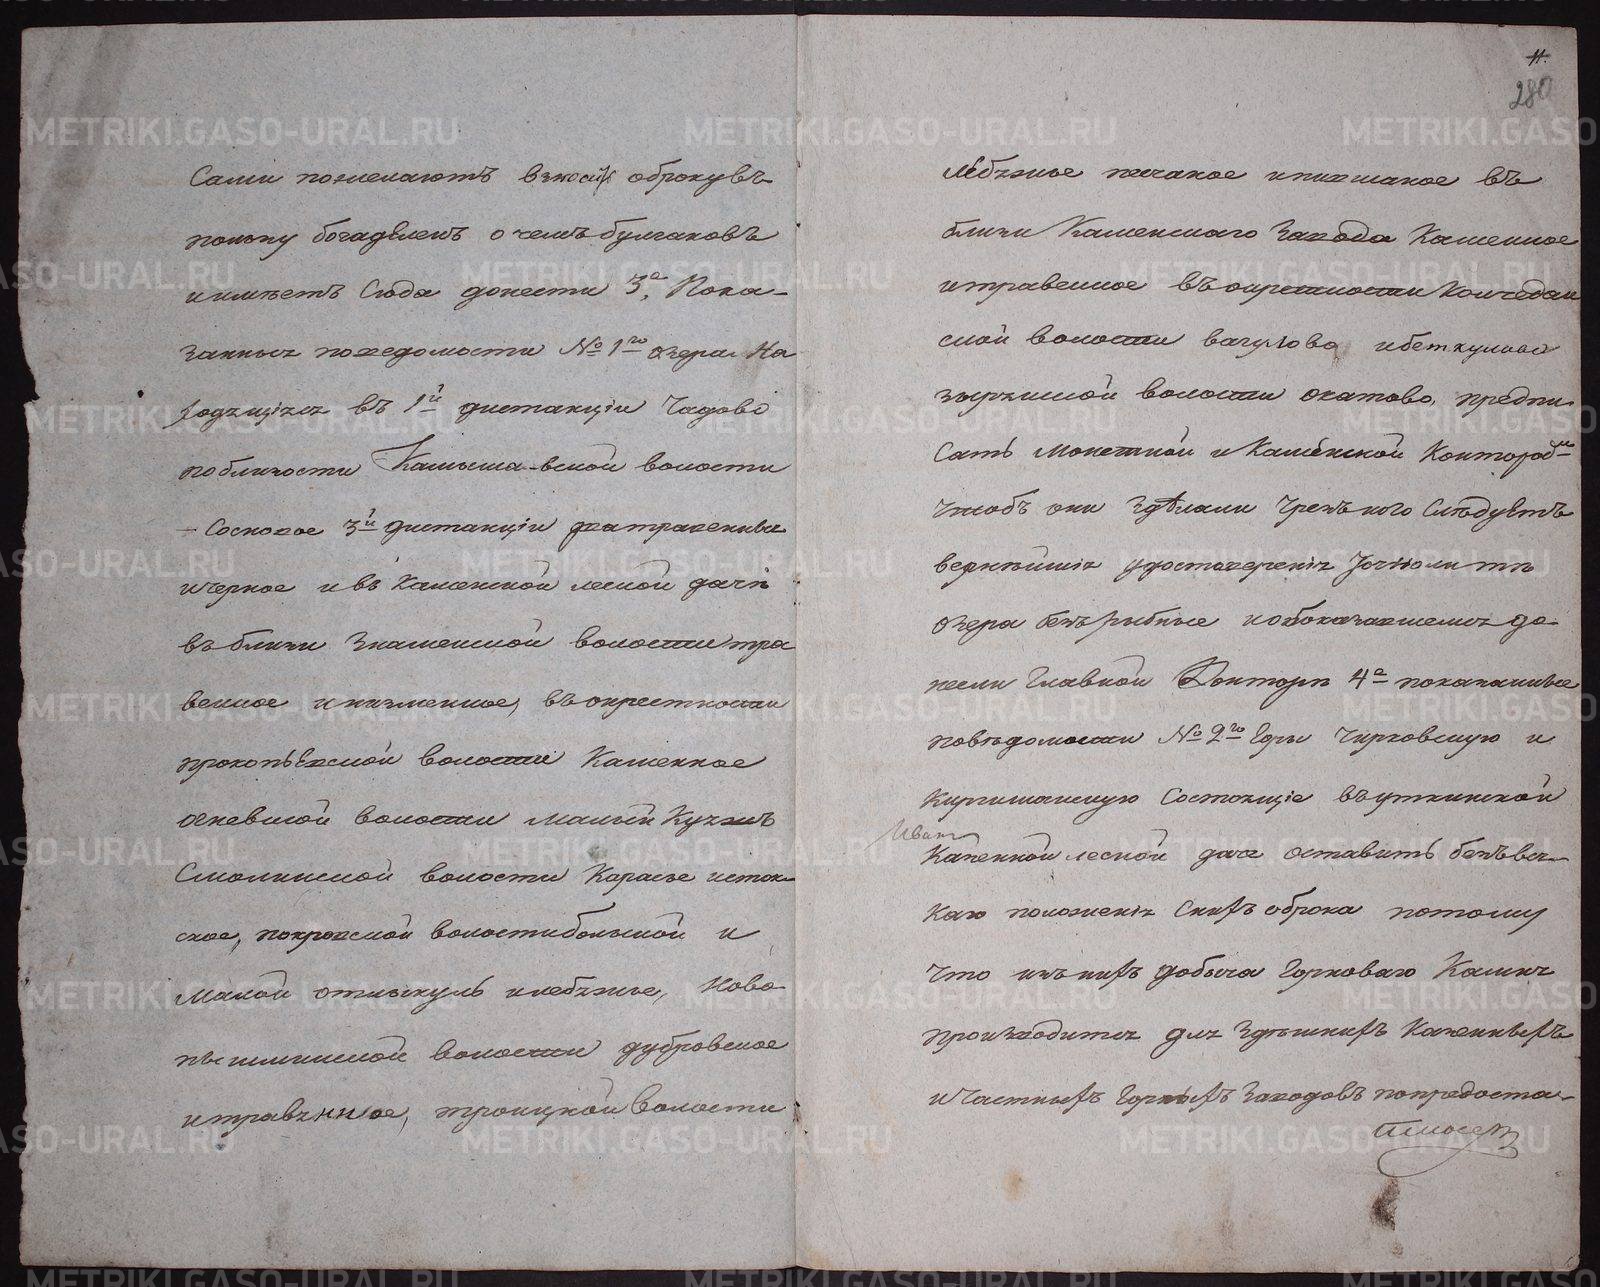 сами пожелаютъ взносить оброку въ
пользу богаделенъ о чемъ булгаковъ
и имѣетъ сюда донести 3е, Пока-
занныя поведомости № 1го озера. На
ходящіяся въ 1й дистанціи Чадово
поблизости Камыша-вской волости
Сосновое 3й дистанціи два травенныя
и черное и въ каменской лесной дачѣ
въ близи Знаменской волости тра
венное и низменное, въ окрестности
прокопьевской волости Каменное
огневской волости малый
Смолинской волости Карасье исток-
ское, покровской волости большой и
малой и лебяжье, Ново-
пышминской волости дубровское
и травянное, троицкой волости
11.
280
лебяжье песчаное въ
близи Каменскаго Завода Каменное
и травенное въ окрестности Колчедан
ской волости и беткулово
волости окатово, предпи
сать Монетной и Каменской Конторамъ
чтобъ они зделали чрезъ кого Слѣдуетъ
вернейшія удостоверенія точноли тѣ
озера безъ рыбные и обоказавшемся до
несли Главной Конторѣ 4е показанные
поведомости № 2го Горы Чирковскую и
Киргишанскую состоящіе въ уткинской
Иванъ
Казенной лесной даче оставить безъ вся-
каго положенія снихъ оброка потому
что изъ нихъ добыча Горноваго Камня
производится для здешнихъ Казенныхъ
и Частныхъ Горныхъ Заводовъ попредоста-